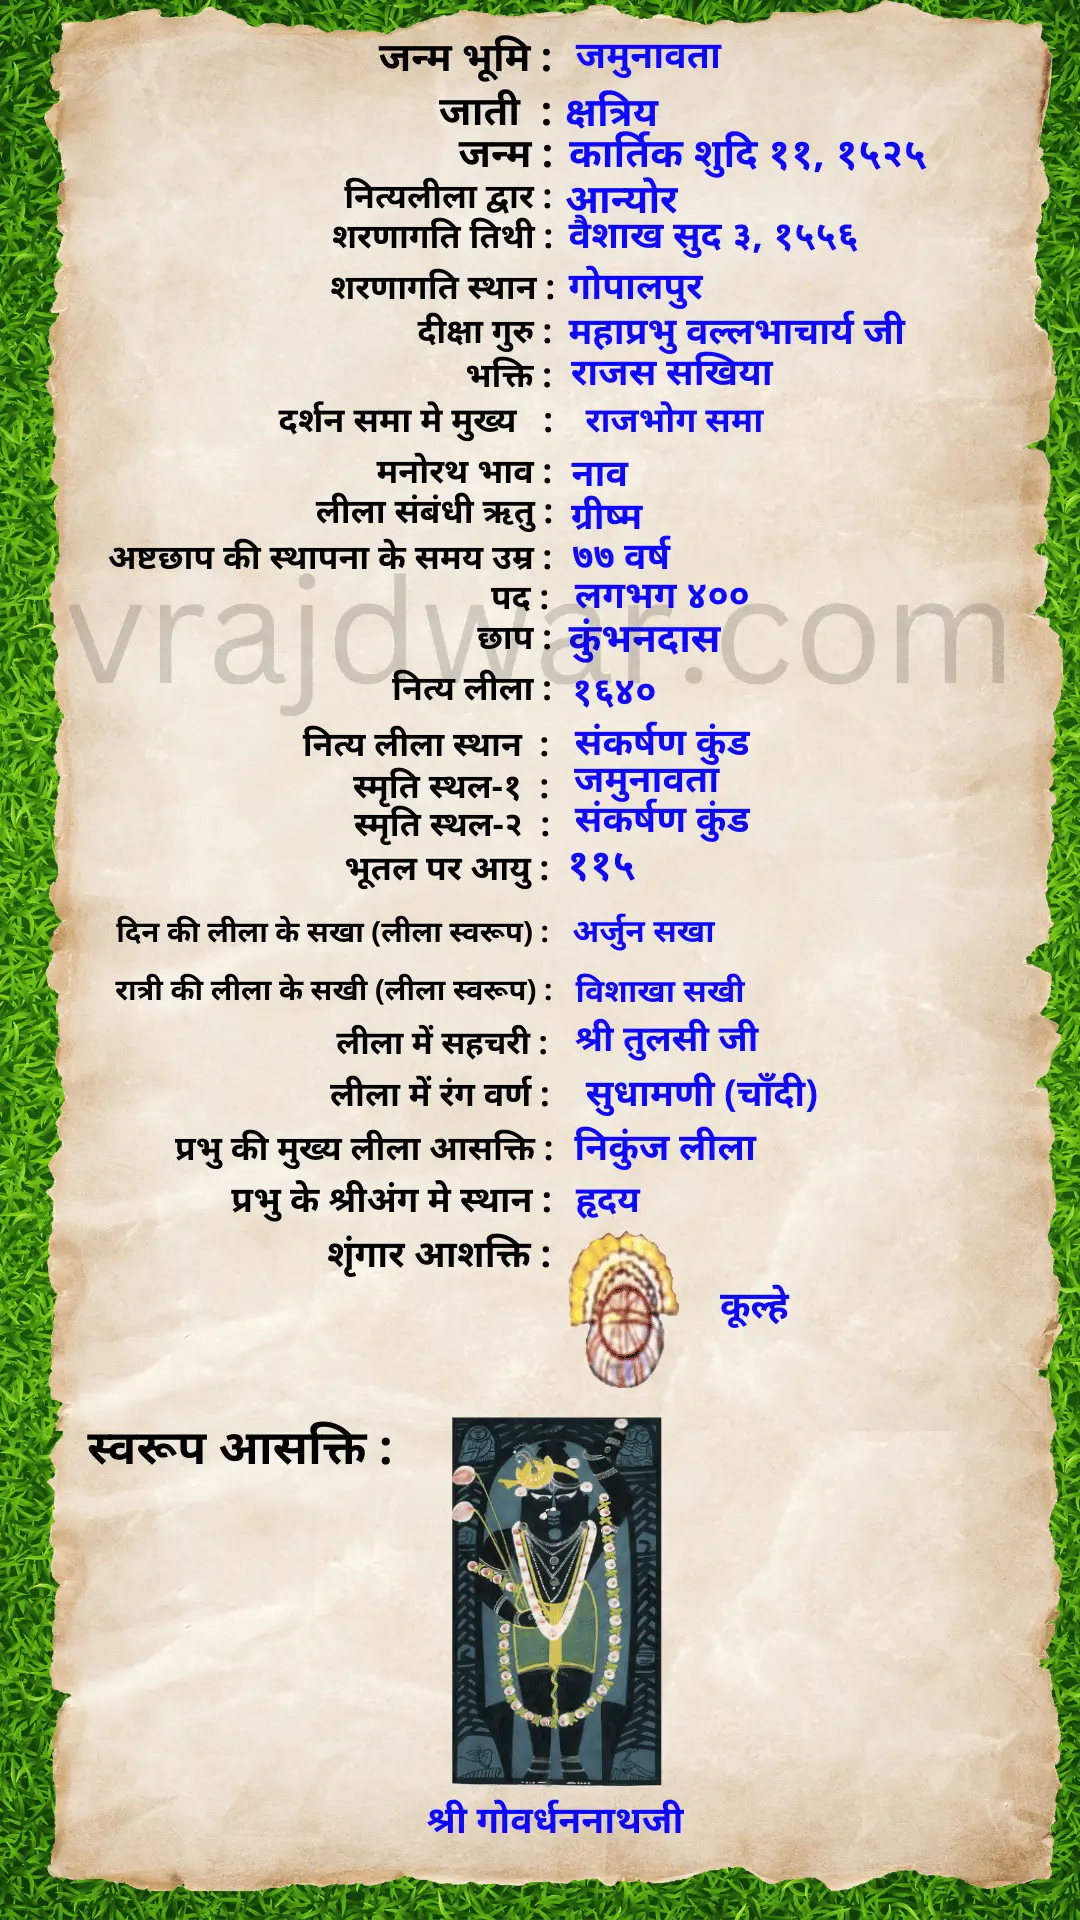 जन्म भूमि : जमुनावता
जाती : क्षत्रिय
जन्म : कार्तिक शुदि ११, १५२५
नित्यलीला द्वार : आन्योर
शरणागति तिथी : वैशाख सुद ३, १५५६
शरणागति स्थान : गोपालपुर
दीक्षा गुरु : महाप्रभु वल्लभाचार्य जी
भक्ति : राजस सखिया
दर्शन समा मे मुख्य : राजभोग समा
मनोरथ भाव : नाव
लीला संबंधी ऋतु : ग्रीष्म
अष्टछाप की स्थापना के समय उम्र : ७७ वर्ष
पद : लगभग ४००
छाप : कुंभनदास
vrajdwar.com
नित्य लीला : १६४०
नित्य लीला स्थान : संकर्षण कुंड
स्मृति स्थल-१ : जमुनावता
स्मृति स्थल-२ : संकर्षण कुंड
भूतल पर आयु : ११५
दिन की लीला के सखा (लीला स्वरूप) : अर्जुन सखा
रात्री की लीला के सखी (लीला स्वरूप) : विशाखा सखी
लीला में सहचरी : श्री तुलसी जी
लीला में रंग वर्ण : सुधामणी (चाँदी)
प्रभु की मुख्य लीला आसक्ति : निकुंज लीला
प्रभु के श्रीअंग मे स्थान : हृदय
शृंगार आशक्ति :
कूल्हे
स्वरूप आसक्ति :
श्री गोवर्धननाथजी